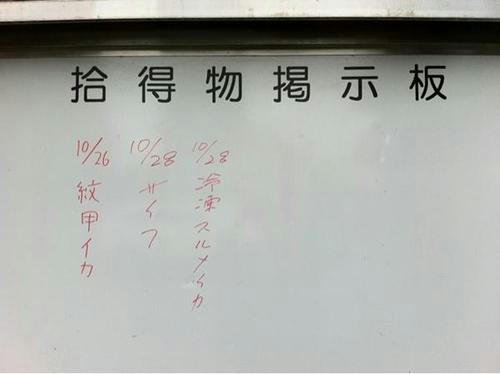 拾得物掲示板
10/26 紋甲イカ
10/28 サイフ
10/28 冷凍スルメイカ